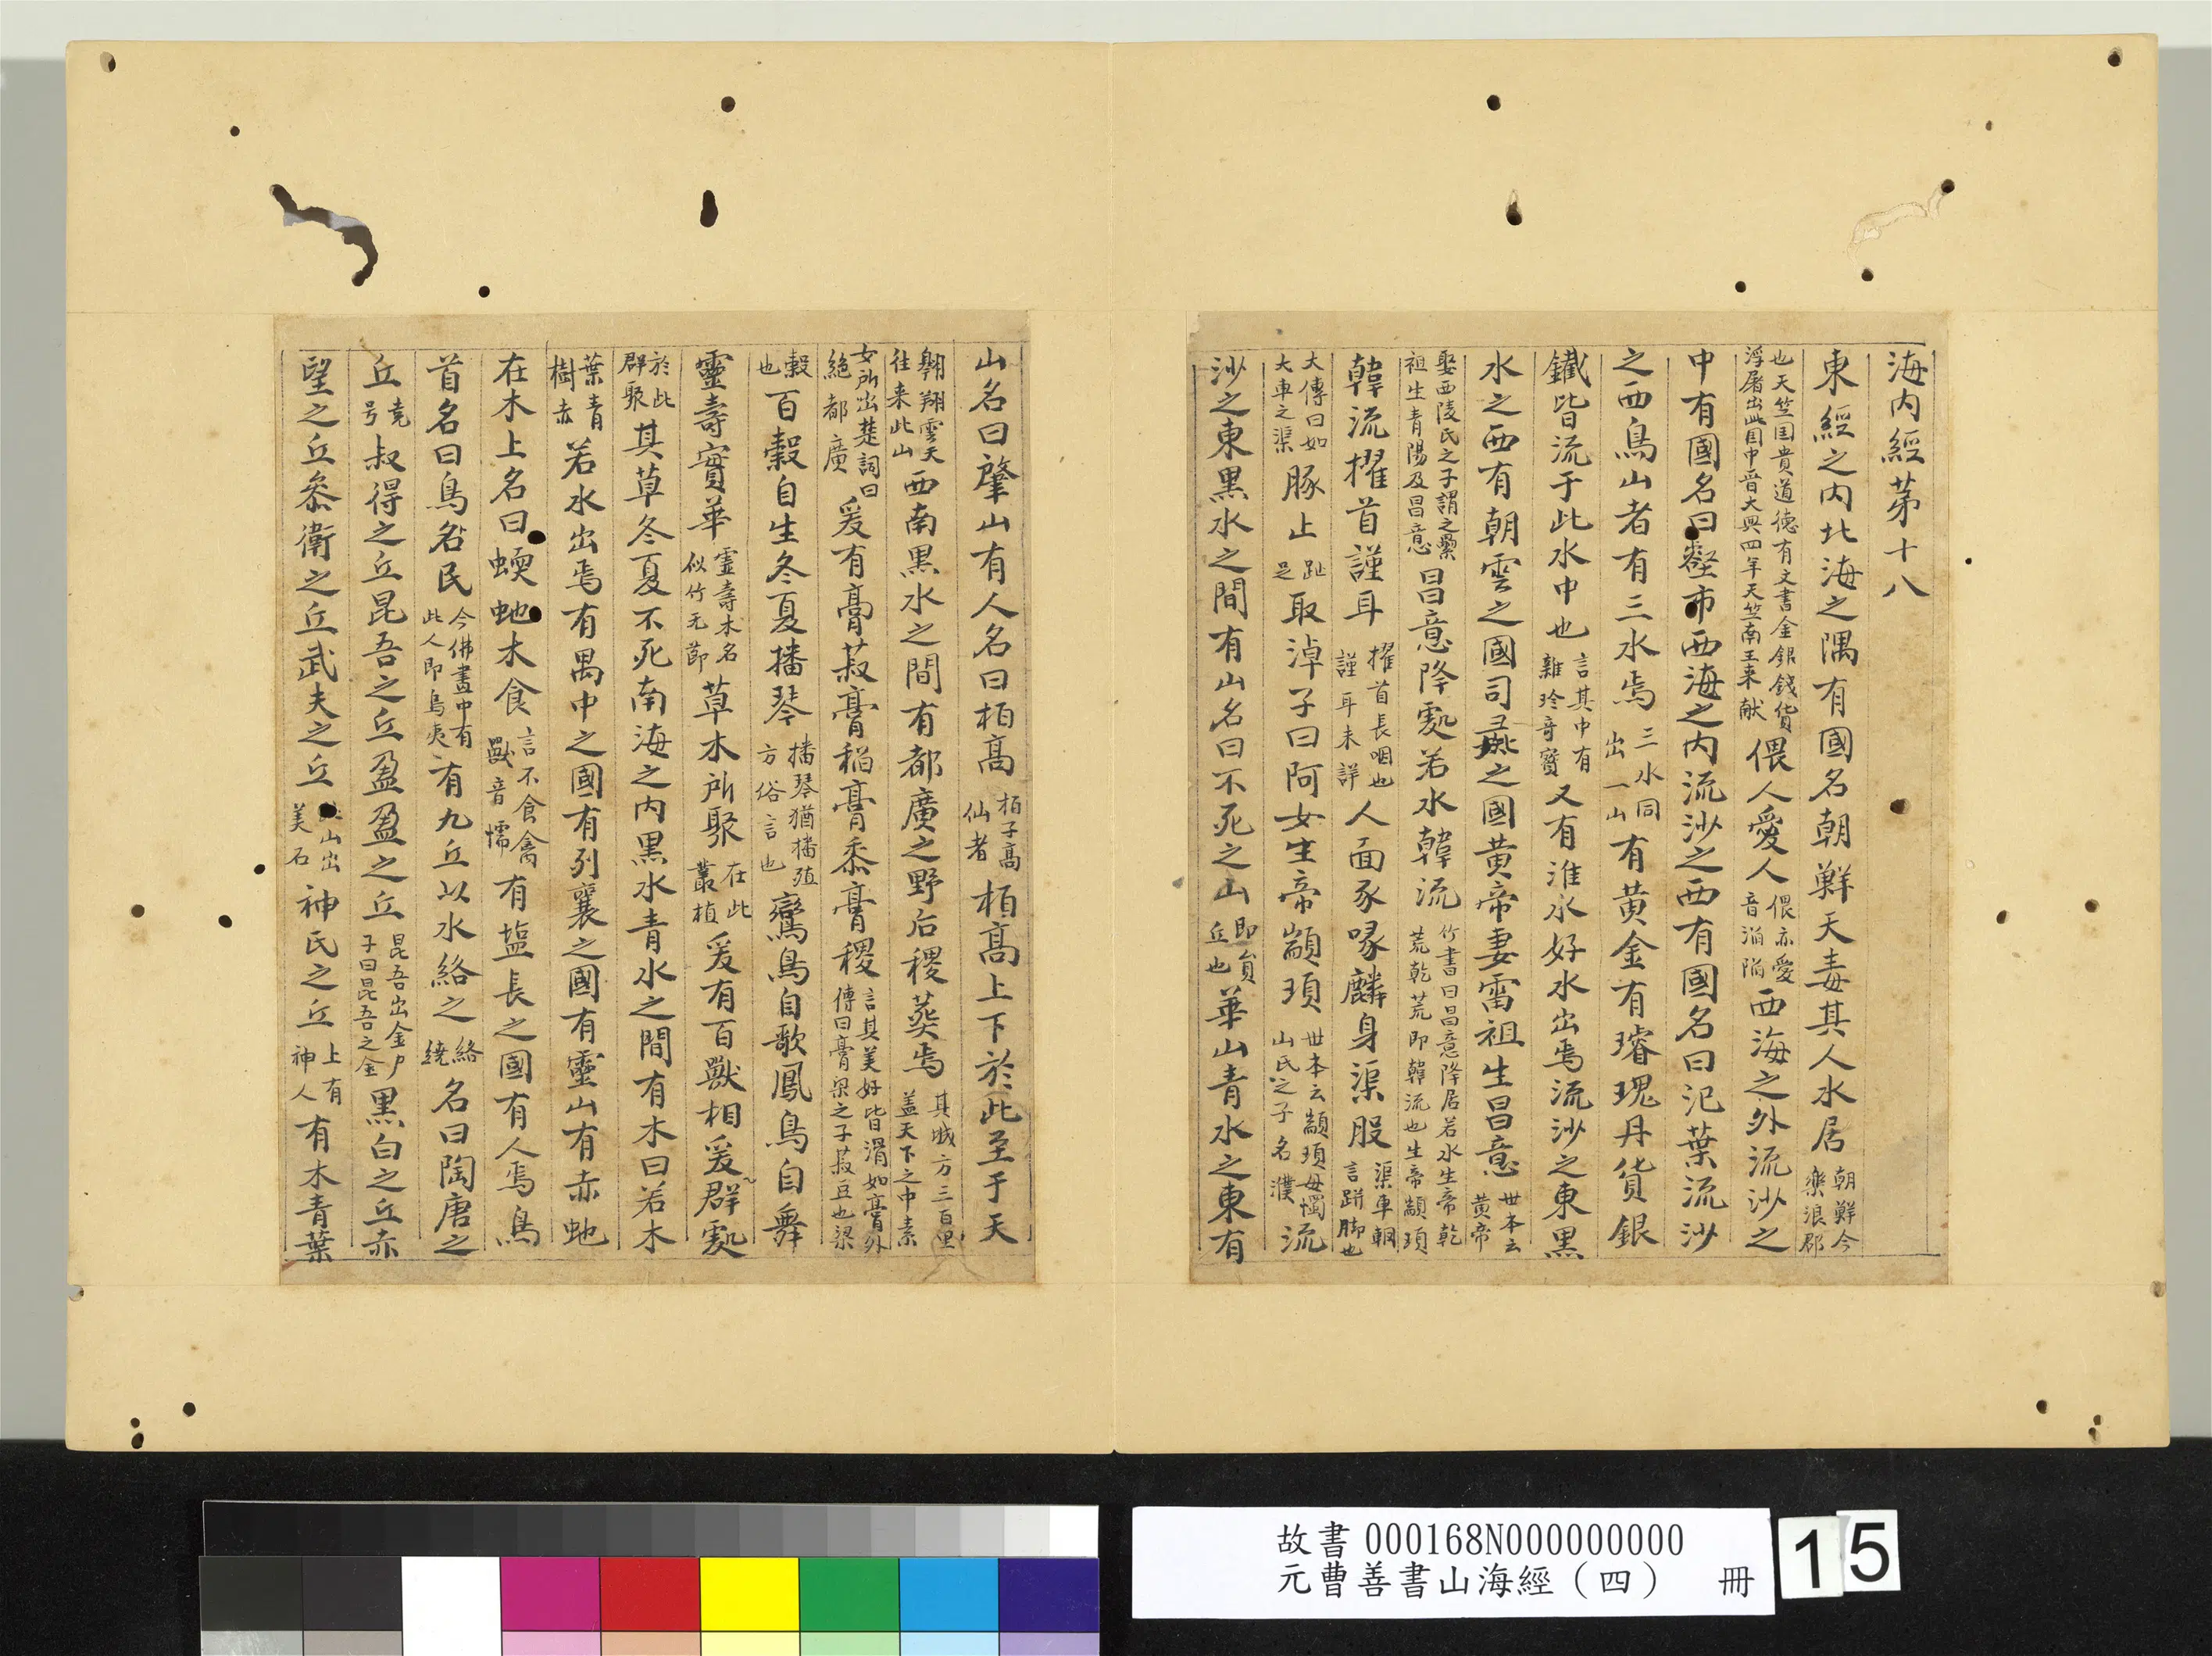 海内經苐十八
東經之内北海之隅有國名朝鮮天毒其人水居朝鮮今樂浪郡
也天竺国貴道德有文書金銀錢貨浮屠出此国中晋大興四年天竺南王来献偎人愛人偎亦愛音㴞㴞西海之外流沙之
中有國名曰壑市西海之内流沙之西有國名曰氾葉流沙
之西鳥山者有三水焉三水同出一山有黄金有璿瑰丹貨銀
鐵皆流于此水中也言其中有雜珍奇寳又有淮水好水出焉流沙之東黒
水之西有朝雲之國司彘之國黄帝妻雷祖生昌意世本云黄帝
娶西陵氏之子謂之纍祖生青陽及昌意昌意降處若水韓流竹書曰昌意降居若水生帝乾荒乾荒即韓流也生帝顓頊
韓流擢首謹耳擢首長咽也謹耳未詳人面豕喙麟身渠股渠車輞言跰脚也
大傳曰如大車之渠豚止趾足取淖子曰阿女生帝顓頊世本云顓頊母濁山氏之子名濮流
沙之東黒水之間有山名曰不死之山即員丘也華山青水之東有
山名曰肇山有人名曰栢髙栢子髙仙者栢髙上下於此至于天
翱翔雲天往来此山西南黒水之間有都廣之野后稷葬焉其城方三百里盖天下之中素
女所出楚詞曰絶都廣爰有膏菽膏稻膏黍膏稷言其美好皆滑如膏外傳曰膏梁之子菽豆也梁
穀也百穀自生冬夏播琴播琴猶播殖方俗言也鸞鳥自歌鳳鳥自舞
靈壽實華霊壽木名似竹无節草木所聚在此叢植爰有百獸相爰群處
於此群聚其草冬夏不死南海之内黒水青水之間有木曰若木
葉青樹赤若水出焉有禺中之國有列襄之國有靈山有赤虵
在木上名曰蝡虵木食言不食禽獸音懦有塩長之國有人焉鳥
首名曰鳥民今佛書中有此人即鳥夷有九丘以水絡之絡繞名曰陶唐之
丘尭号叔得之丘昆吾之丘盈盈之丘昆吾出金尸子曰昆吾之金黒白之丘赤
望之丘叅衛之丘武夫之丘山出美石神氏之丘上有神人有木青葉
故書000168N000000000
元曹善書山海經（四） 冊
15